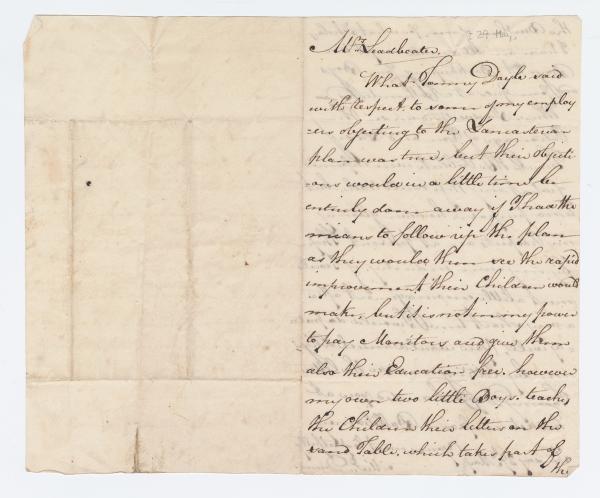 29 May
Mrs. Leadbeater
What Tommy Doyle said
with respect to some of my employ
=ers objecting to the Lancasterian
plan was true, but their objecti
ons would in a little time be
entirely done away if I had the
means to follow up the plan
as they would then see the rapid
improvement their Children would
make, but it is not in my power
to pay Monitors and give them
also their Education free. however
my own two little Boys. teaches
the Children their letters on the
sand Table, which takes part of
the